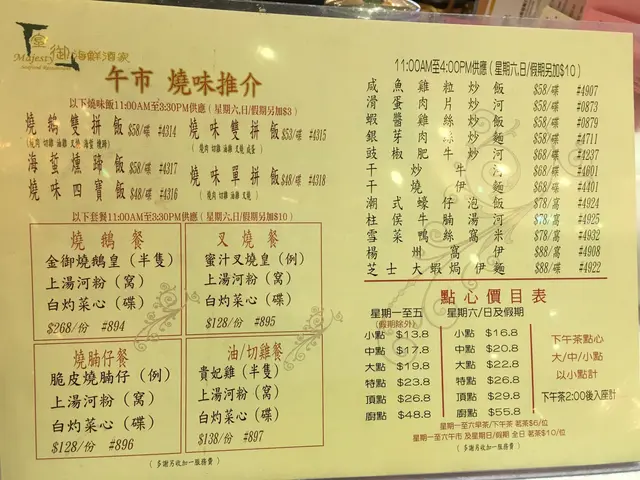 皇御海鮮酒家
Majesty
Seafood Restaurant
午市 燒味推介
以下燒味飯11:00AM至3:30PM供應 ( 星期六,日/假期另加$3 )
燒鵝雙拼飯 $58/碟 #4314
燒味雙拼飯 $53/碟 #4315
海蜇燻蹄飯 $58/碟 #4317
燒味單拼飯 $48/碟 #4318
燒味四寶飯 $48/碟 #4316
以下套餐11:00AM至3:30PM供應 ( 星期六,日/假期另加$10 )
燒鵝餐
金御燒鵝皇 (半隻)
上湯河粉 (窩)
白灼菜心 (碟)
$268/份 #894
叉燒餐
蜜汁叉燒皇 (例)
上湯河粉 (窩)
白灼菜心 (碟)
$128/份 #895
燒腩仔餐
脆皮燒腩仔 (例)
上湯河粉 (窩)
白灼菜心 (碟)
$128/份 #896
油/切雞餐
貴妃雞 (半隻)
上湯河粉 (窩)
白灼菜心 (碟)
$138/份 #897
( 多謝另收加一服務費 )
11:00AM至4:00PM供應 ( 星期六,日/假期另加$10 )
咸魚雞粒炒飯 $58/碟 #4907
滑蛋肉片炒河 $58/碟 #0873
蝦醬雞絲炒飯 $58/碟 #0879
銀芽肉絲炒麵 $58/碟 #4711
豉椒肥牛炒河 $68/碟 #4237
干炒牛河 $68/碟 #4601
干燒伊麵 $68/碟 #4401
潮式蠔仔泡飯 $78/窩 #4924
柱侯牛腩湯河 $78/窩 #4925
雪菜鴨絲窩米 $78/窩 #4932
楊州窩伊 $88/窩 #4908
芝士大蝦焗伊麵 $88/碟 #4922
點心價目表
星期一至五
(假期除外)
小點 $13.8
中點 $17.8
大點 $19.8
特點 $23.8
頂點 $26.8
廚點 $48.8
星期六/日及假期
小點 $16.8
中點 $20.8
大點 $22.8
特點 $26.8
頂點 $29.8
廚點 $55.8
下午茶點心
大/中/小點
以小點計
下午茶2:00後入座計
星期一至六早茶/下午茶 茗茶$6/位
星期一至六午市 及星期日/假期 全日 茗茶$10/位
( 多謝另收加一服務費 )